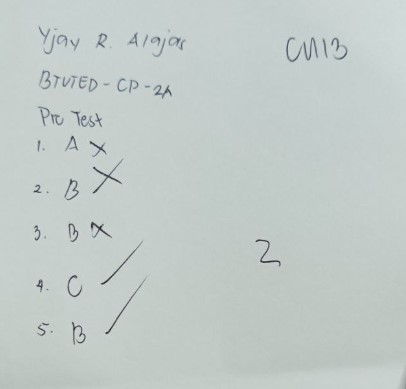 Yjay R. Alajas
CM13
BTVTED - CP - 2A
Pre Test
1. A ×
2. B ×
3. B ×
4. C /
5. B /
2